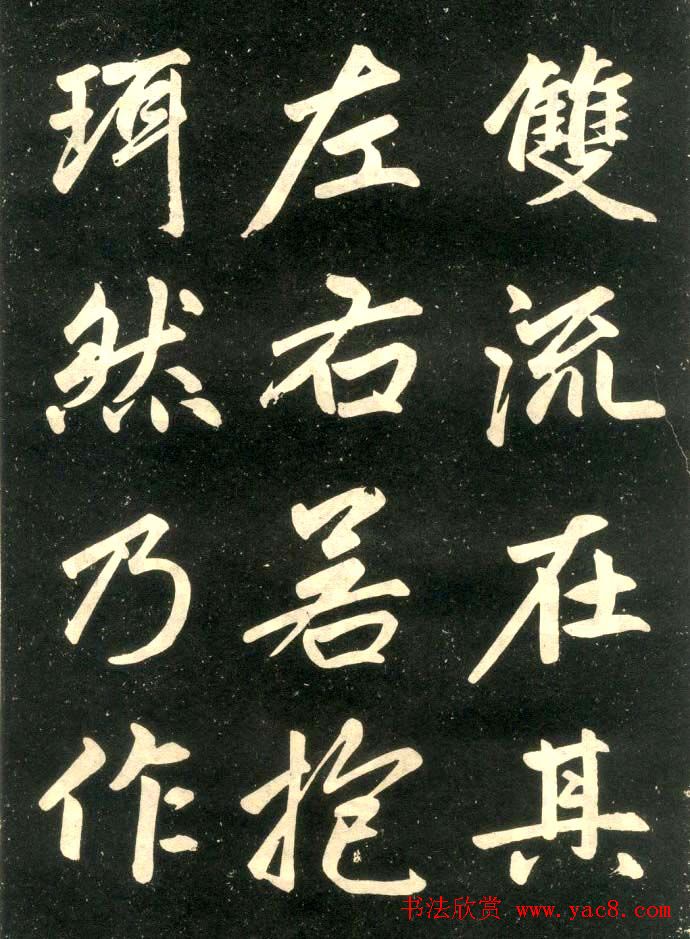 雙流在其
左右若抱
珥然乃作
书法欣赏 www.yac8.com